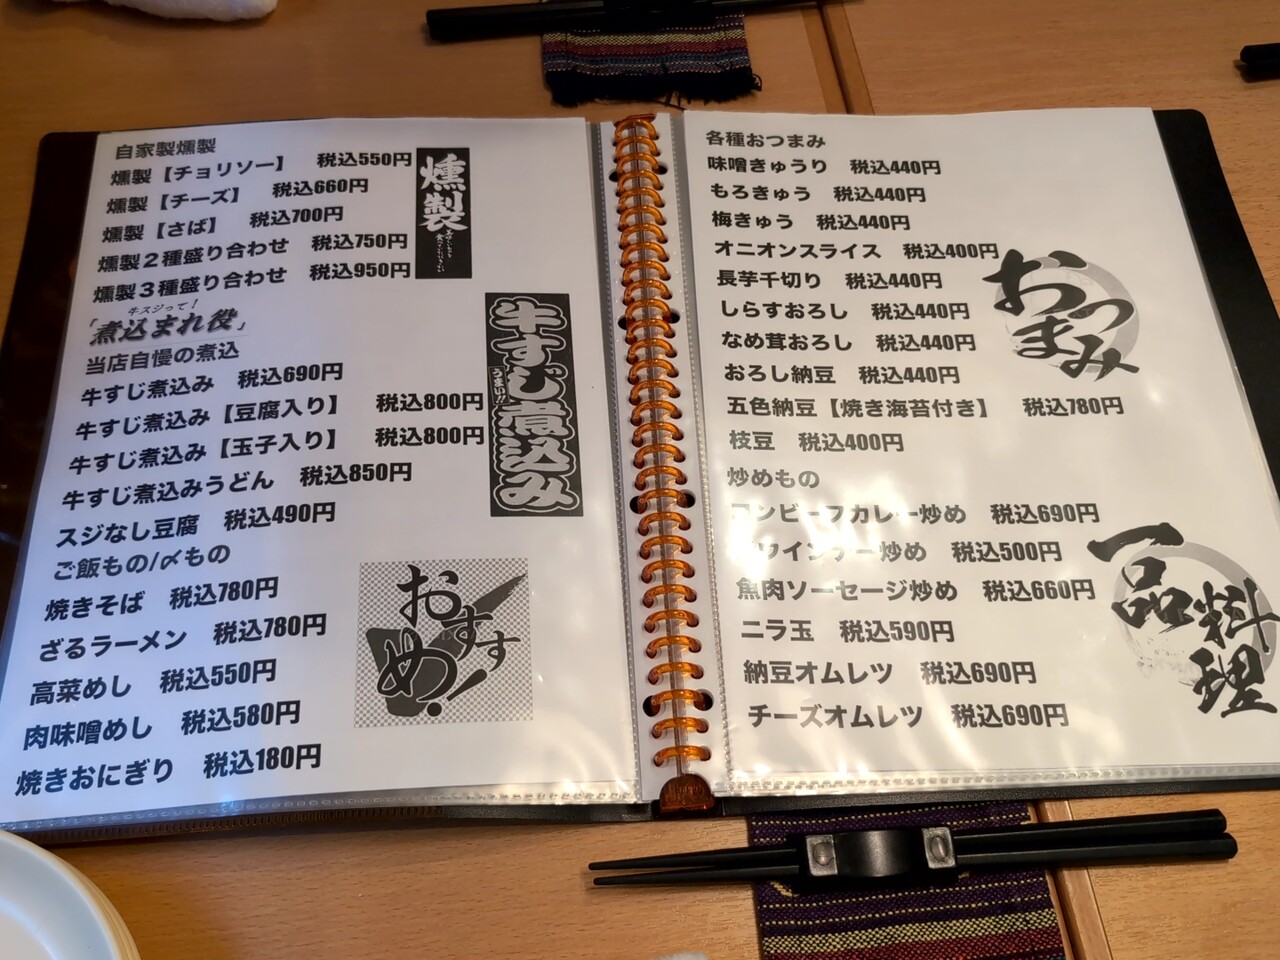 自家製燻製
燻製【チョリソー】 税込550円
燻製【チーズ】 税込660円
燻製【さば】 税込700円
燻製2種盛り合わせ 税込750円
燻製3種盛り合わせ 税込950円
燻製
牛スジって!
「煮込まれ役」
当店自慢の煮込
牛すじ煮込み 税込690円
牛すじ煮込み【豆腐入り】 税込800円
牛すじ煮込み【玉子入り】 税込800円
牛すじ煮込みうどん 税込850円
スジなし豆腐 税込490円
牛すじ煮込み
うまい!!
ご飯もの/〆もの
焼きそば 税込780円
ざるラーメン 税込780円
高菜めし 税込550円
肉味噌めし 税込580円
焼きおにぎり 税込180円
おすすめ!
各種おつまみ
味噌きゅうり 税込440円
もろきゅう 税込440円
梅きゅう 税込440円
オニオンスライス 税込400円
長芋千切り 税込440円
しらすおろし 税込440円
なめ茸おろし 税込440円
おろし納豆 税込440円
五色納豆【焼き海苔付き】 税込780円
枝豆 税込400円
おつまみ
炒めもの
コンビーフカレー炒め 税込690円
ウインナー炒め 税込500円
魚肉ソーセージ炒め 税込660円
ニラ玉 税込590円
納豆オムレツ 税込690円
チーズオムレツ 税込690円
一品料理